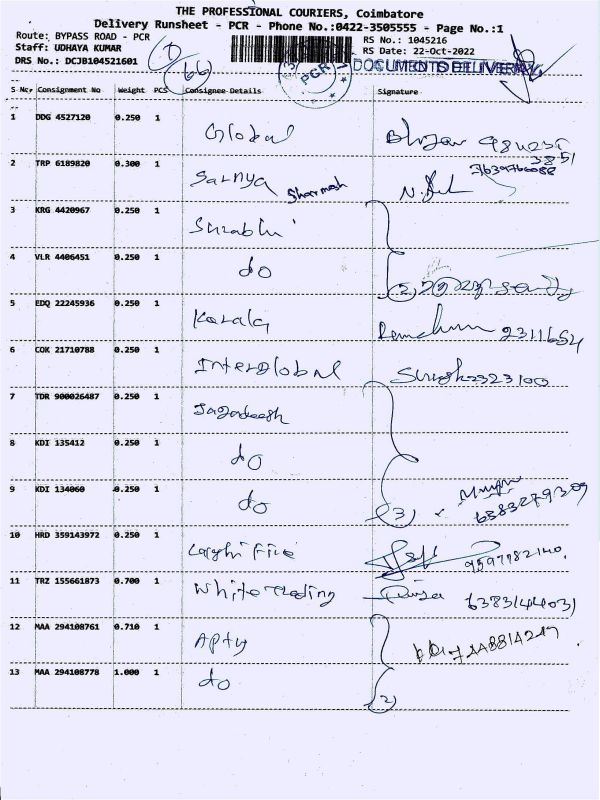 THE PROFESSIONAL COURIERS, Coimbatore
Delivery Runsheet - PCR - Phone No.:0422-3505555 - Page No.:1
Route: BYPASS ROAD - PCR
Staff: UDHAYA KUMAR
DRS No.: DCJB104521601
RS No.: 1045216
RS Date: 22-Oct-2022
66
PCR
S No. Consignment No Weight PCS Consignee Details Signature
1 DDG 4527120 0.250 1 Global
2 TRP 6189820 0.300 1 Sarnya Sharmesh
3 KRG 4420967 0.250 1 Surabhi
4 VLR 4406451 0.250 1 do 2
5 EDQ 22245936 0.250 1 Kerala 2311654
6 COK 21710788 0.250 1 Interglobal Suresh 2323100
7 TDR 900026487 0.250 1 Jagadeesh
8 KDI 135412 0.250 1 do
9 KDI 134060 0.250 1 do 3
10 HRD 359143972 0.250 1 9597782140.
11 TRZ 155661873 0.700 1 White 6383144031
12 MAA 294108761 0.710 1 Apty
13 MAA 294108778 1.000 1 do 2